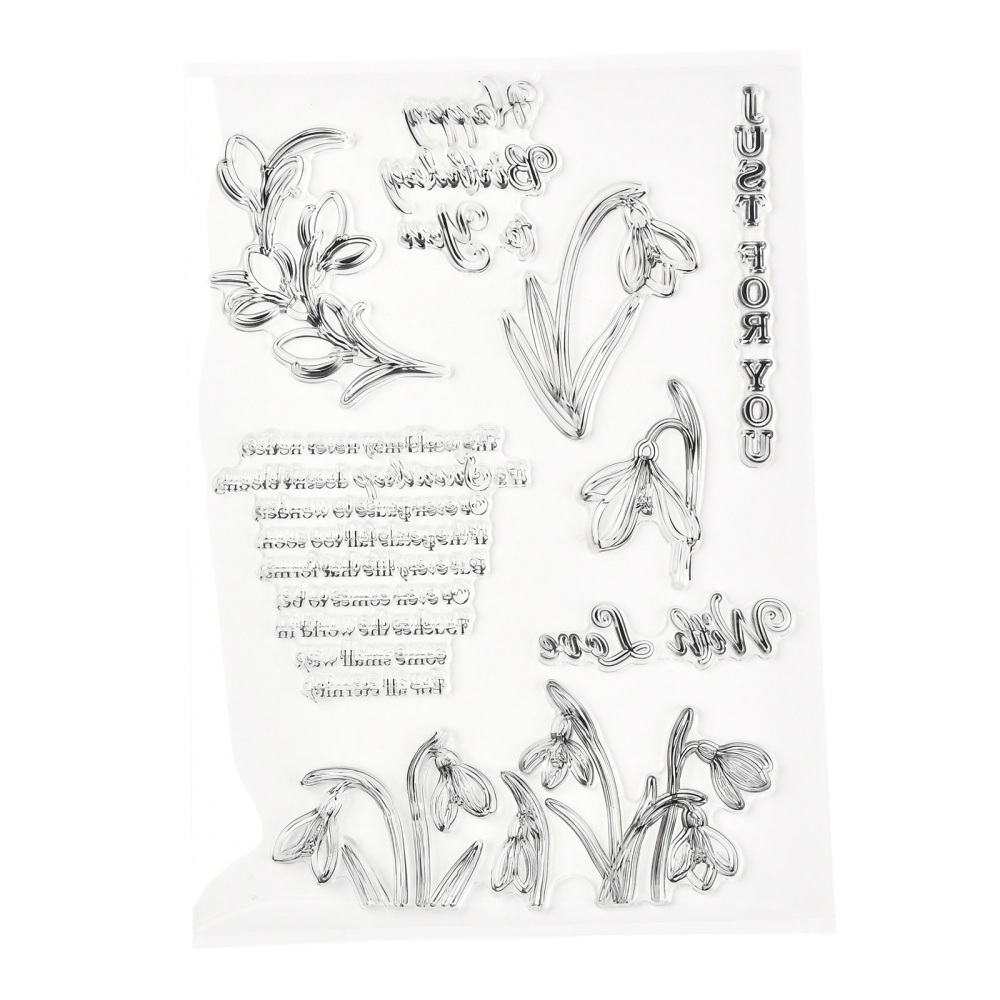 Happy
Birthday
to You
JUST FOR YOU
The world may never notice
If a Snowdrop doesn't bloom,
Or even pause to wonder,
If the petals fall too soon.
But every life that forms,
Or even comes to be,
Touches the world in
some small way,
For all eternity.
With Love